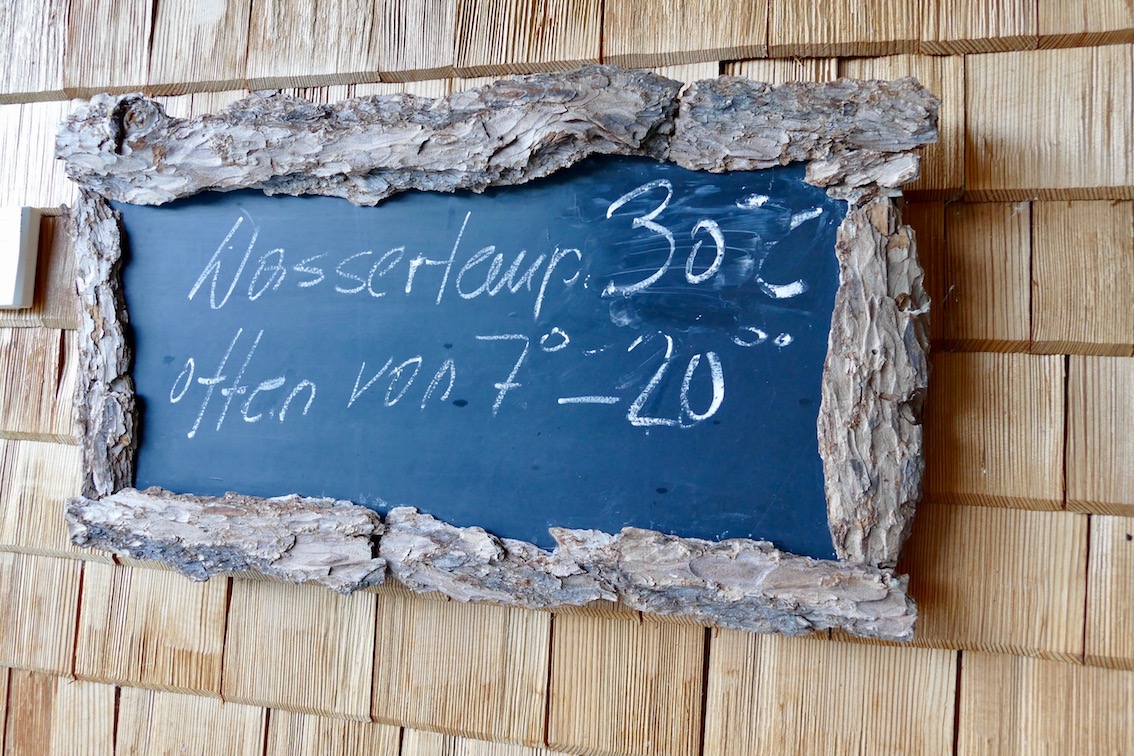 Wassertemp. 30°C
offen von 7° - 20°°